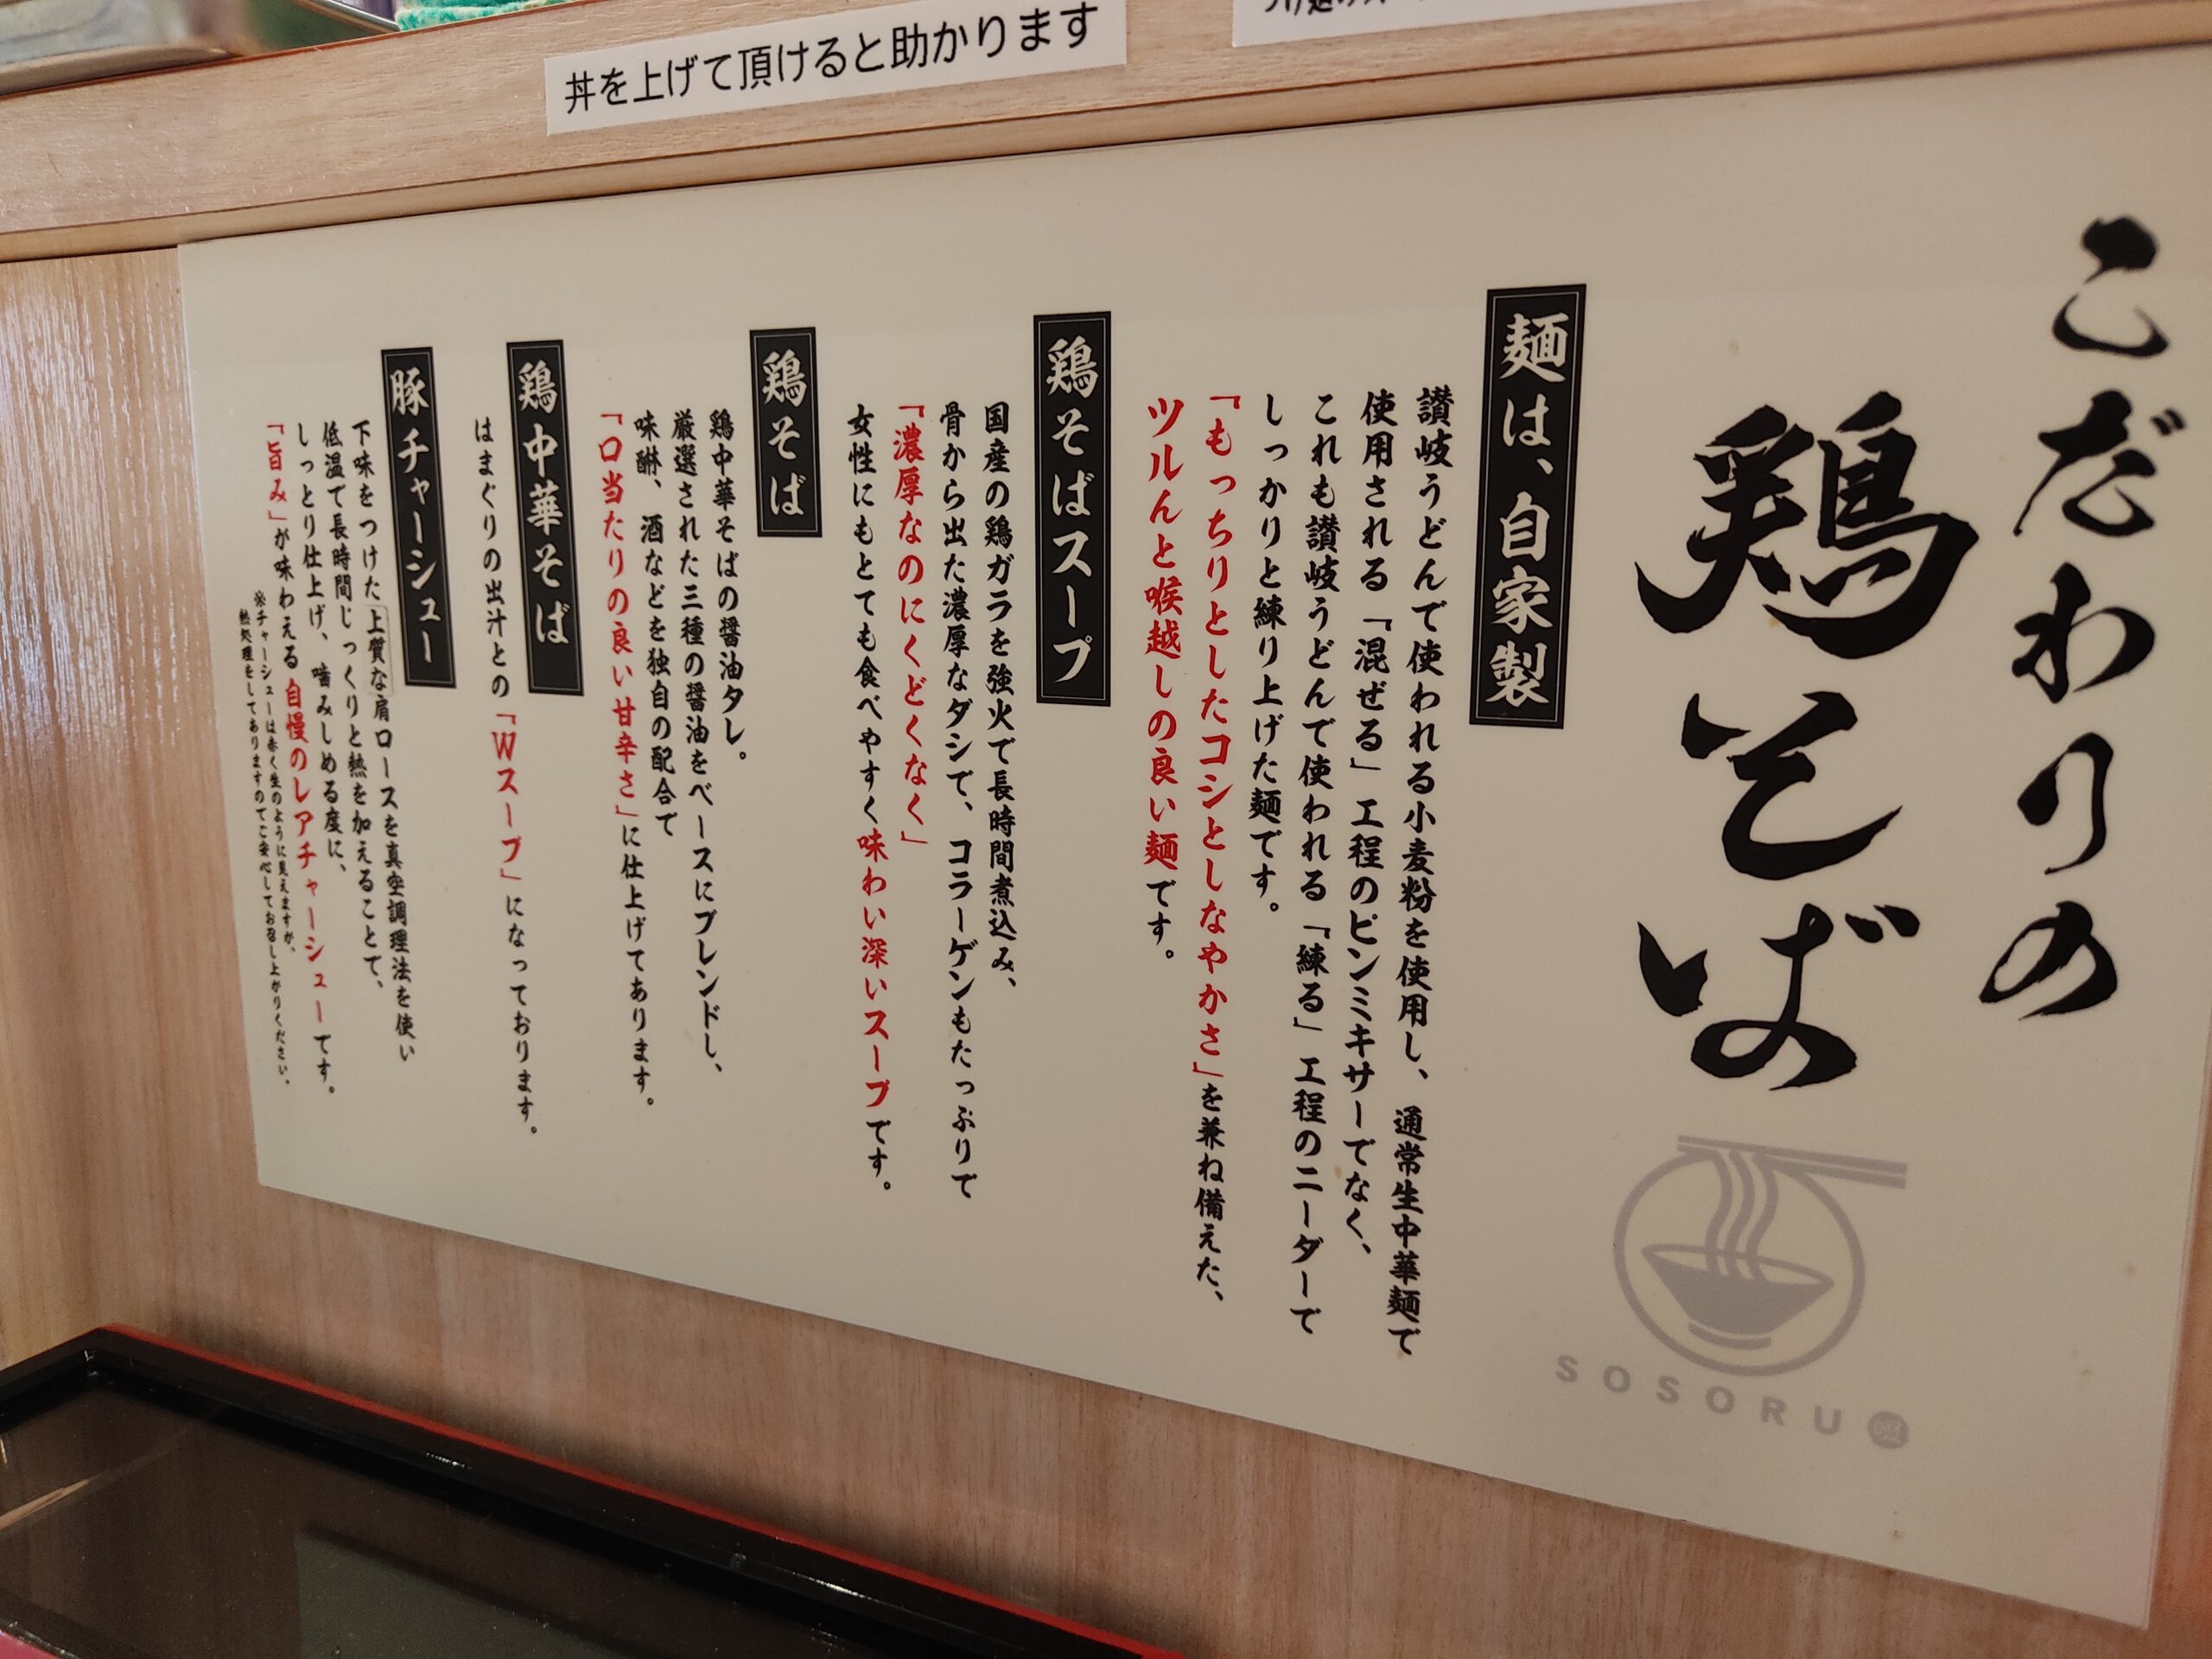 丼を上げて頂けると助かります
こだわりの
鶏そば
SOSORU
麺は、自家製
讃岐うどんで使われる小麦粉を使用し、通常生中華麺で
使用される「混ぜる」工程のピンミキサーでなく、
これも讃岐うどんで使われる「練る」工程のニーダーで
しっかりと練り上げた麺です。
「もっちりとしたコシとしなやかさ」を兼ね備えた、
ツルんと喉越しの良い麺です。
鶏そばスープ
国産の鶏ガラを強火で長時間煮込み、
骨から出た濃厚なダシで、コラーゲンもたっぷりで
「濃厚なのにくどくなく」
女性にもとても食べやすく味わい深いスープです。
鶏そば
鶏中華そばの醤油タレ。
厳選された三種の醤油をベースにブレンドし、
味醂、酒などを独自の配合で
「口当たりの良い甘辛さ」に仕上げてあります。
鶏中華そば
はまぐりの出汁との「Wスープ」になっております。
豚チャーシュー
下味をつけた上質な肩ロースを真空調理法を使い
低温で長時間じっくりと熱を加えることで、
しっとり仕上げ、噛みしめる度に、
「旨み」が味わえる自慢のレアチャーシューです。
※チャーシューは赤く生のように見えますが、
熱処理をしてありますのでご安心してお召し上がりください。